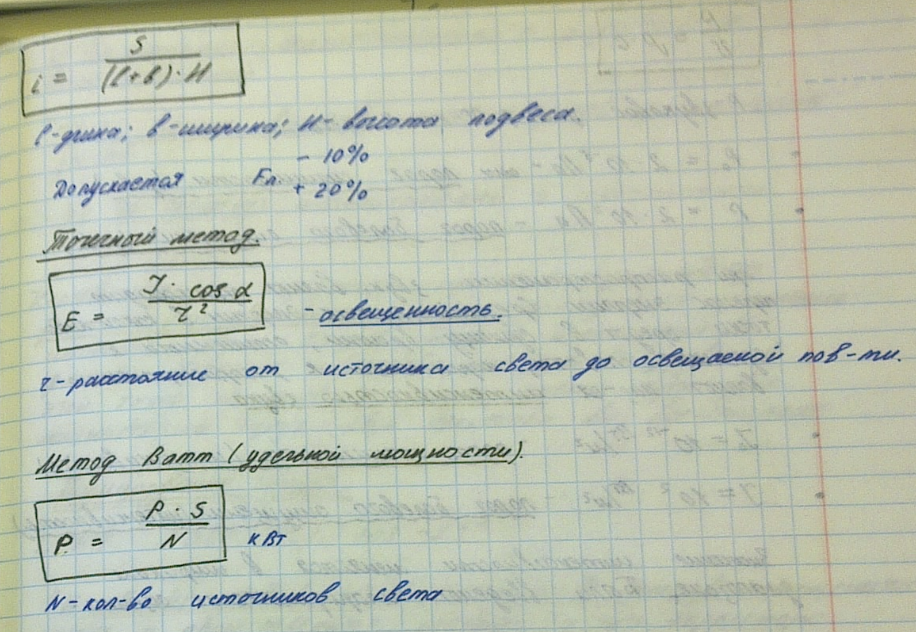 i = S / (l+в)·H
l-длина; в-ширина; H-высота подвеса.
Допускается Fл - 10% + 20%
Точечный метод.
E = I · cos α / r² - освещенность.
r-расстояние от источника света до освещаемой пов-ти.
Метод Ватт (удельной мощности).
P = P · S / N кВт
N-кол-во источников света